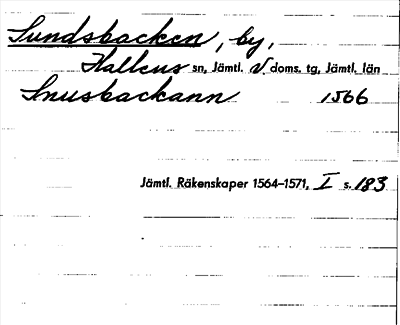 Sundsbacken, by,
Hallens sn, Jämtl. V doms. tg, Jämtl. län
Snusbackann 1566
Jämtl. Räkenskaper 1564–1571, I s. 183